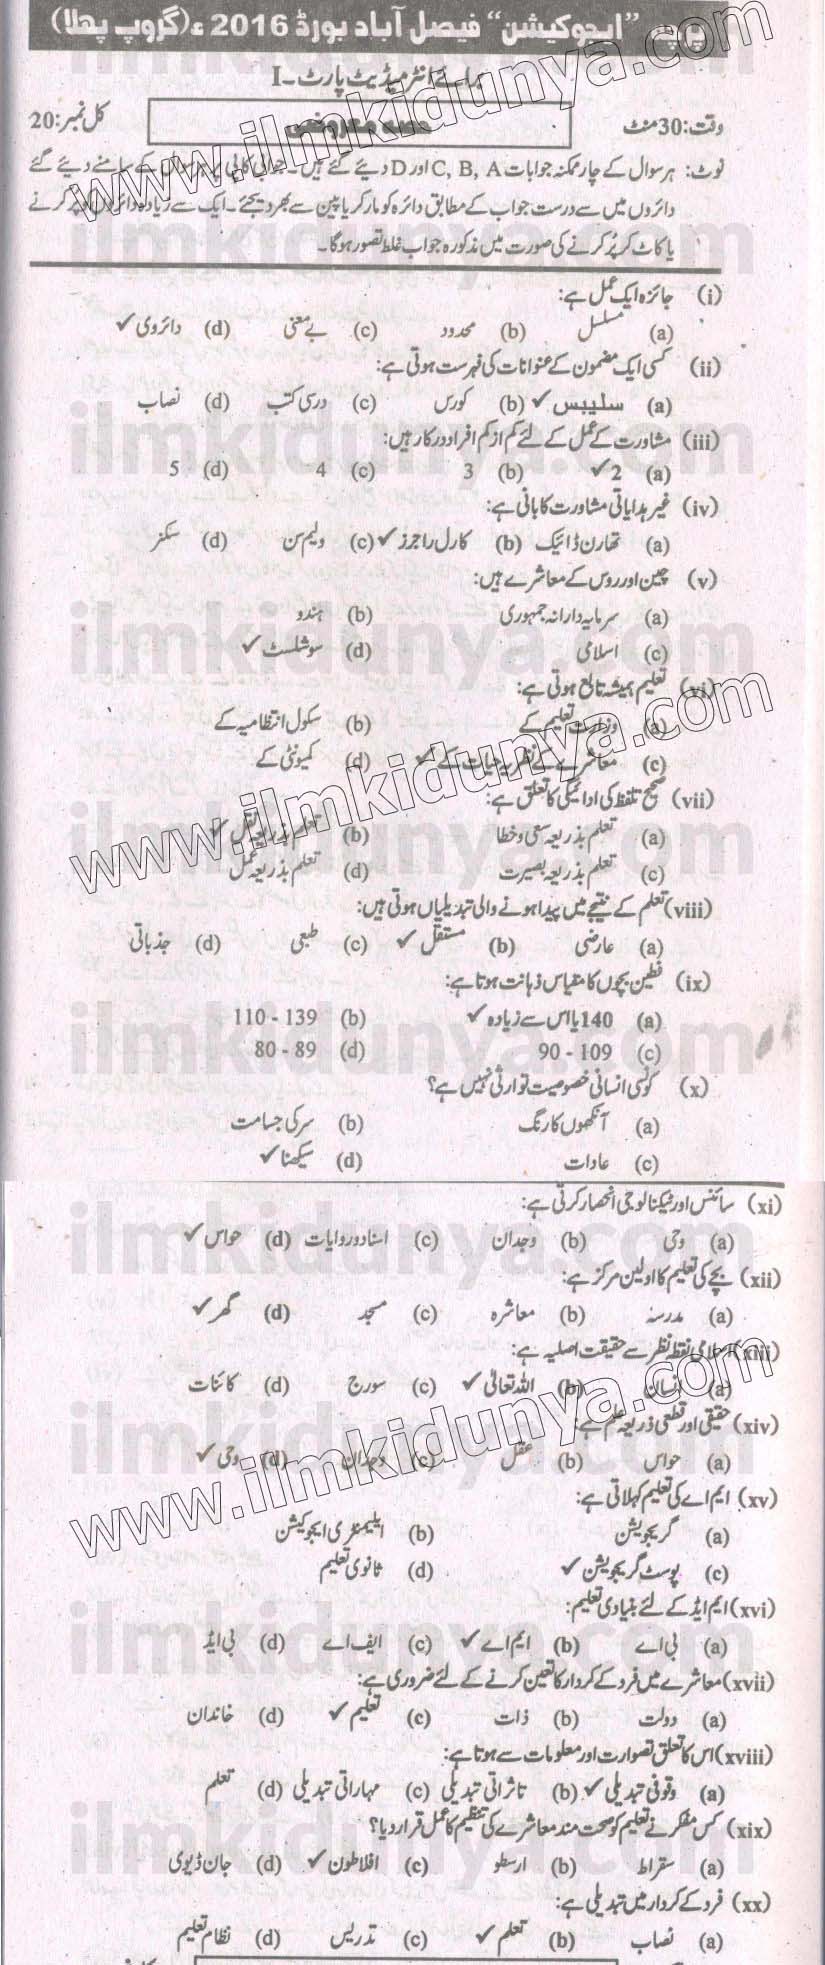 پرچہ "ایجوکیشن" فیصل آباد بورڈ 2016ء (گروپ پہلا)
برائے انٹرمیڈیٹ پارٹ-I
وقت: 30 منٹ حصہ معروضی کل نمبر: 20
نوٹ: ہر سوال کے چار ممکنہ جوابات A ،B ،C اور D دیئے گئے ہیں۔ جوابی کاپی پر ہر سوال کے سامنے دیئے گئے
دائروں میں سے درست جواب کے مطابق دائرہ کو مارکر یا پین سے بھر دیجئے۔ ایک سے زیادہ دائروں کو پر کرنے
یا کاٹ کر پُر کرنے کی صورت میں مذکورہ جواب غلط تصور ہو گا۔
(i) جائزہ ایک عمل ہے:
(a) مسلسل (b) محدود (c) بے معنی (d) دائروی ✓
(ii) کسی ایک مضمون کے عنوانات کی فہرست ہوتی ہے:
(a) سلیبس ✓ (b) کورس (c) درسی کتب (d) نصاب
(iii) مشاورت کے عمل کے لئے کم از کم افراد درکار ہیں:
(a) 2 ✓ (b) 3 (c) 4 (d) 5
(iv) غیر ہدایاتی مشاورت کا بانی ہے:
(a) تھارن ڈائیک (b) کارل راجرز ✓ (c) ولیم سن (d) سکنر
(v) چین اور روس کے معاشرے ہیں:
(a) سرمایہ دارانہ جمہوری (b) ہندو
(c) اسلامی (d) سوشلسٹ ✓
(vi) تعلیم ہمیشہ تابع ہوتی ہے:
(a) وزارت تعلیم کے (b) سکول انتظامیہ کے
(c) معاشرے کے نظریہ حیات کے ✓ (d) کمیونٹی کے
(vii) صحیح تلفظ کی ادائیگی کا تعلق ہے:
(a) تعلم بذریعہ سعی و خطا (b) تعلم بذریعہ نقل ✓
(c) تعلم بذریعہ بصیرت (d) تعلم بذریعہ عمل
(viii) تعلم کے نتیجے میں پیدا ہونے والی تبدیلیاں ہوتی ہیں:
(a) عارضی (b) مستقل ✓ (c) طبعی (d) جذباتی
(ix) فطین بچوں کا مقیاس ذہانت ہوتا ہے:
(a) 140 یا اس سے زیادہ ✓ (b) 110 - 139
(c) 90 - 109 (d) 80 - 89
(x) کونسی انسانی خصوصیت توارثی نہیں ہے؟
(a) آنکھوں کا رنگ (b) سر کی جسامت
(c) عادات (d) سیکھنا ✓
(xi) سائنس اور ٹیکنالوجی انحصار کرتی ہے:
(a) وحی (b) وجدان (c) اسناد و روایات (d) حواس ✓
(xii) بچے کی تعلیم کا اولین مرکز ہے:
(a) مدرسہ (b) معاشرہ (c) مسجد (d) گھر ✓
(xiii) اسلامی نقطہ نظر سے حقیقت اصلیہ ہے:
(a) انسان (b) اللہ تعالیٰ ✓ (c) سورج (d) کائنات
(xiv) حقیقی اور قطعی ذریعہ علم ہے:
(a) حواس (b) عقل (c) وجدان (d) وحی ✓
(xv) ایم اے کی تعلیم کہلاتی ہے:
(a) گریجویشن (b) ایلیمنٹری ایجوکیشن
(c) پوسٹ گریجویشن ✓ (d) ثانوی تعلیم
(xvi) ایم ایڈ کے لئے بنیادی تعلیم:
(a) بی اے (b) ایم اے ✓ (c) ایف اے (d) بی ایڈ
(xvii) معاشرے میں فرد کے کردار کا تعین کرنے کے لئے ضروری ہے:
(a) دولت (b) ذات (c) تعلیم ✓ (d) خاندان
(xviii) اس کا تعلق تصوارت اور معلومات سے ہوتا ہے:
(a) وقوفی تبدیلی ✓ (b) تاثراتی تبدیلی (c) مہاراتی تبدیلی (d) تعلم
(xix) کس مفکر نے تعلیم کو صحت مند معاشرے کی تنظیم کا عمل قرار دیا؟
(a) سقراط (b) ارسطو (c) افلاطون ✓ (d) جان ڈیوی
(xx) فرد کے کردار میں تبدیلی ہے:
(a) نصاب (b) تعلم ✓ (c) تدریس (d) نظام تعلیم
www.ilmkidunya.com
www.ilmkidunya.com
www.ilmkidunya.com
ilmkidunya.com
ilmkidunya.com
ilmkidunya.com
ilmkidunya.com
ilmkidunya.com
ilmkidunya.com
ilmkidunya.com
ilmkidunya.com
ilmkidunya.com